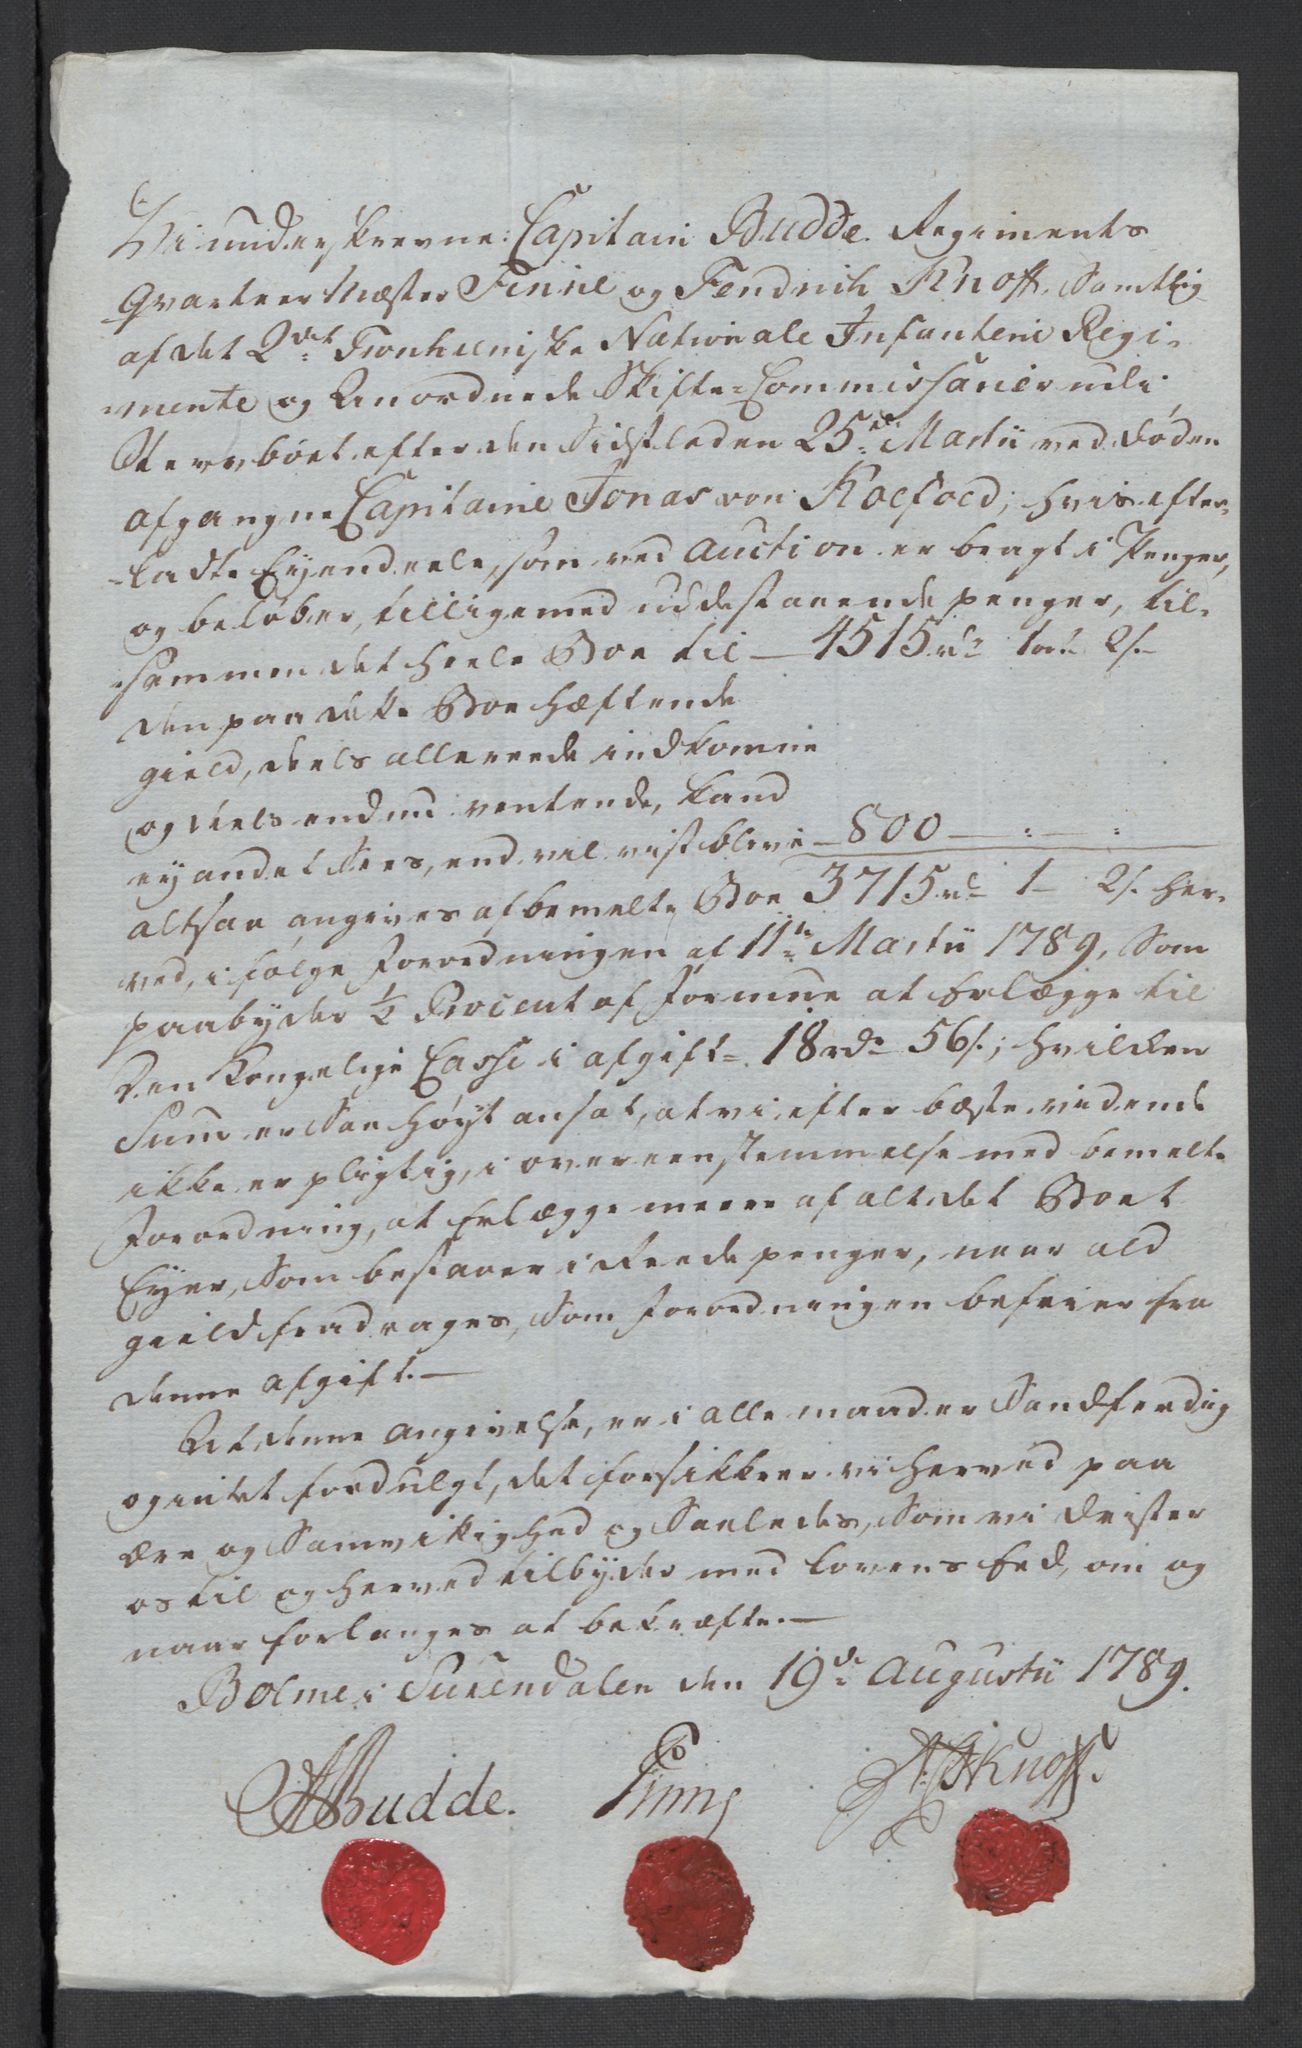 Vi underskrevne: Capitain Budde. Regiments
Qvarteermæster Finne og Fendrich Knoff, Samtlig
af det 2det Tronhiemske Nationale Infanterie Regi-
mente og Anordnede Skifte-Commissarier udi
Stervboet efter den Sidstleden 25de Martii ved Døden
afgangne Capitaine Jonas von Koefoed; hvis efter-
-ladte Eyendeele, som ved Auction er bragt i Penger,
og beløber, tilligemed udestaaende penger, til-
sammen det heele Boe til — 4515 rd 1 ort 2 s.
den paa dette Boe hæftende
gield, deels allereede indkomne
og deels endnu ventende, kand
ey andet Sees, end vil vist blive — 800 — : — :
altsaa angives af bemelte Boe 3715 rd 1 — 2 s. her-
ved, i følge Forordningen af 11te Martii 1789, Som
paabyder ½ Procent af Formue at Erlægge til
Den Kongelige Casse i afgift = 18 rd 56 s.; hvilcken
Sum er Saa høyt ansat, at vi efter bæste vidende
ikke er pligtig, i overeenstemmelse med bemelte
Forordning, at Erlægge meere af alt det Boet
Eyer, Som bestaaer i Reede penger, naar ald
gield fradrages, Som Forordningen befrier fra
denne afgift. —
At denne Angivelse, er i alle maader Sandferdig
og intet fordulgt, det forsikkrer vi herved paa
Ære og Samvittighed og Saaledes, Som vi Drister
os til og herved tilbyder med Lovens Eed, om og
naar forlanges at bekræfte. —
Bolme i Surendalen den 19de Augustii 1789.
Budde. Finne Knoff.